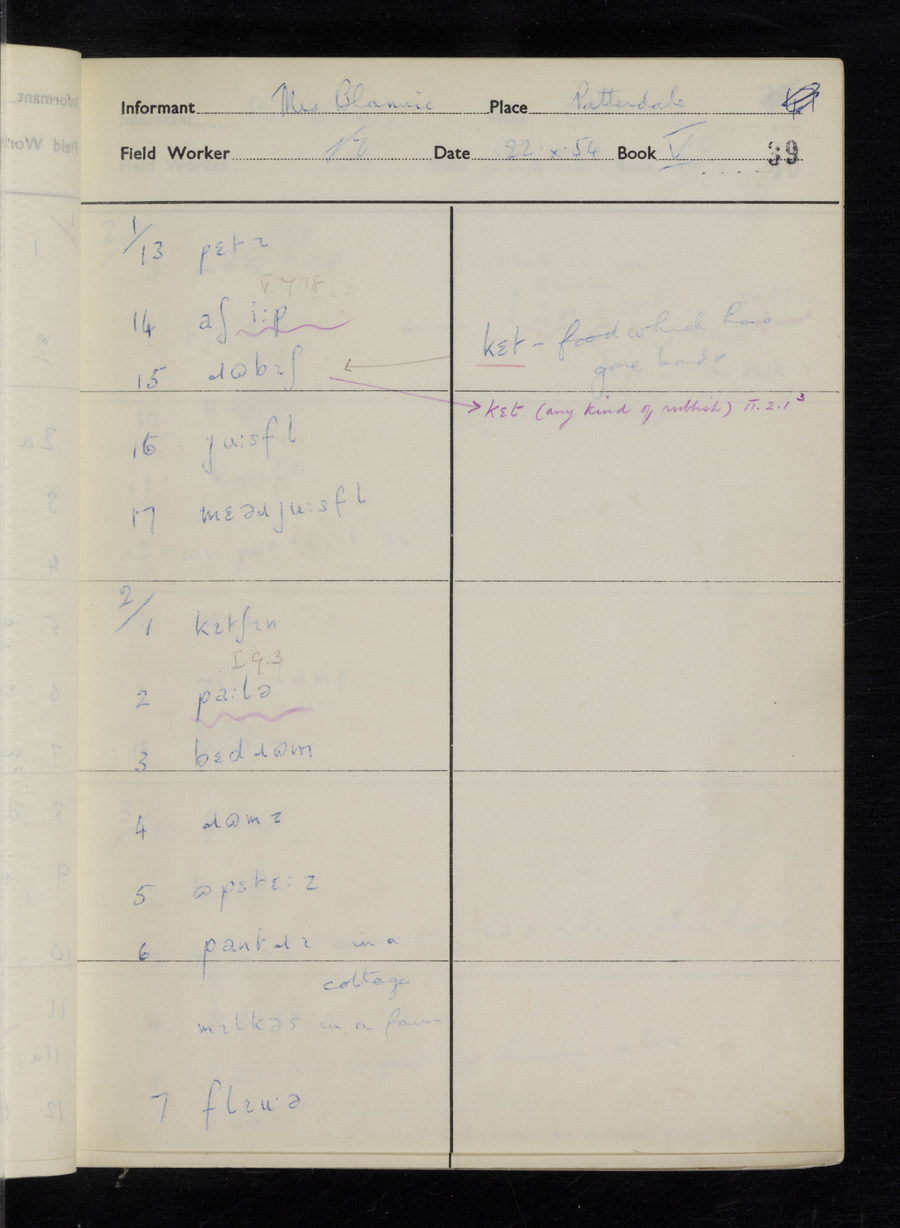 Informant Mrs Blamire Place Patterdale 41
Field Worker Date 22·x·54 Book V 39
1/13 pɛtɪ
V.7.18
14 aʃ ɪ:p
15 ɹɷbɪʃ
kɛt – food which has
gone bad
kɛt (any kind of rubbish) II.2.1³
16 ju:sfl
17 mɛəɹju:sfl
2/1 kɪtʃɪn
I.9.3
2 pa:lə
3 bɛdɹɷm
4 ɹɷmz
5 ɷpstɛ:z
6 pantɹɪ in a
cottage
mɪlkəs in a farm
7 flɪu:ə